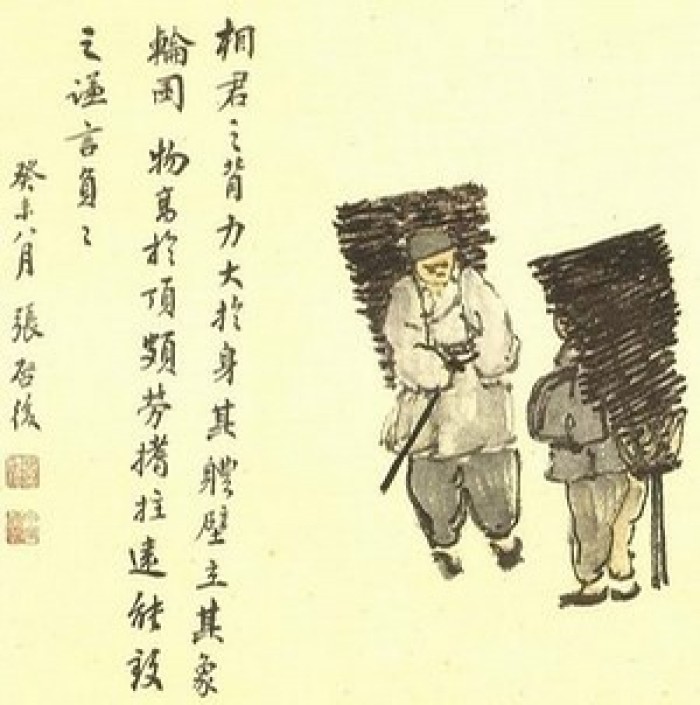 相君之背力大於身其體壁立其象
輪囷物高於頂頗勞撐拄遠能致
之謙言負之
癸未八月 張啟後